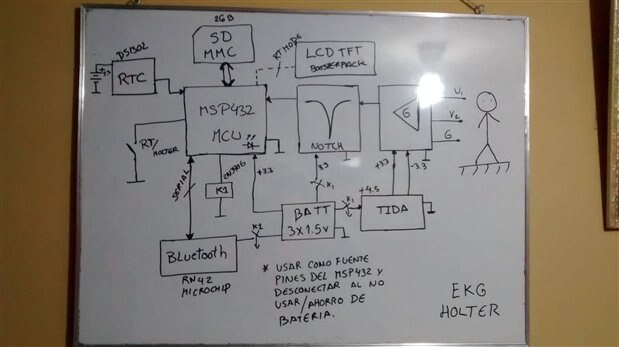 2GB
SD
MMC
DS1302
RTC
RT MODE
LCD TFT
BOOSTERPACK
MSP432
MCU
NOTCH
G
V1
V2
G
RT/
HOLTER
SERIAL
K1
+3.3
3.3
K1
+3.3
-3.3
+4.5
K1
BATT
3x1.5V
TIDA
K2
Bluetooth
RN42
MICROCHIP
* USAR COMO FUENTE
PINES DEL MSP432 Y
DESCONECTAR AL NO
USAR/AHORRO DE
BATERIA.
EKG
HOLTER